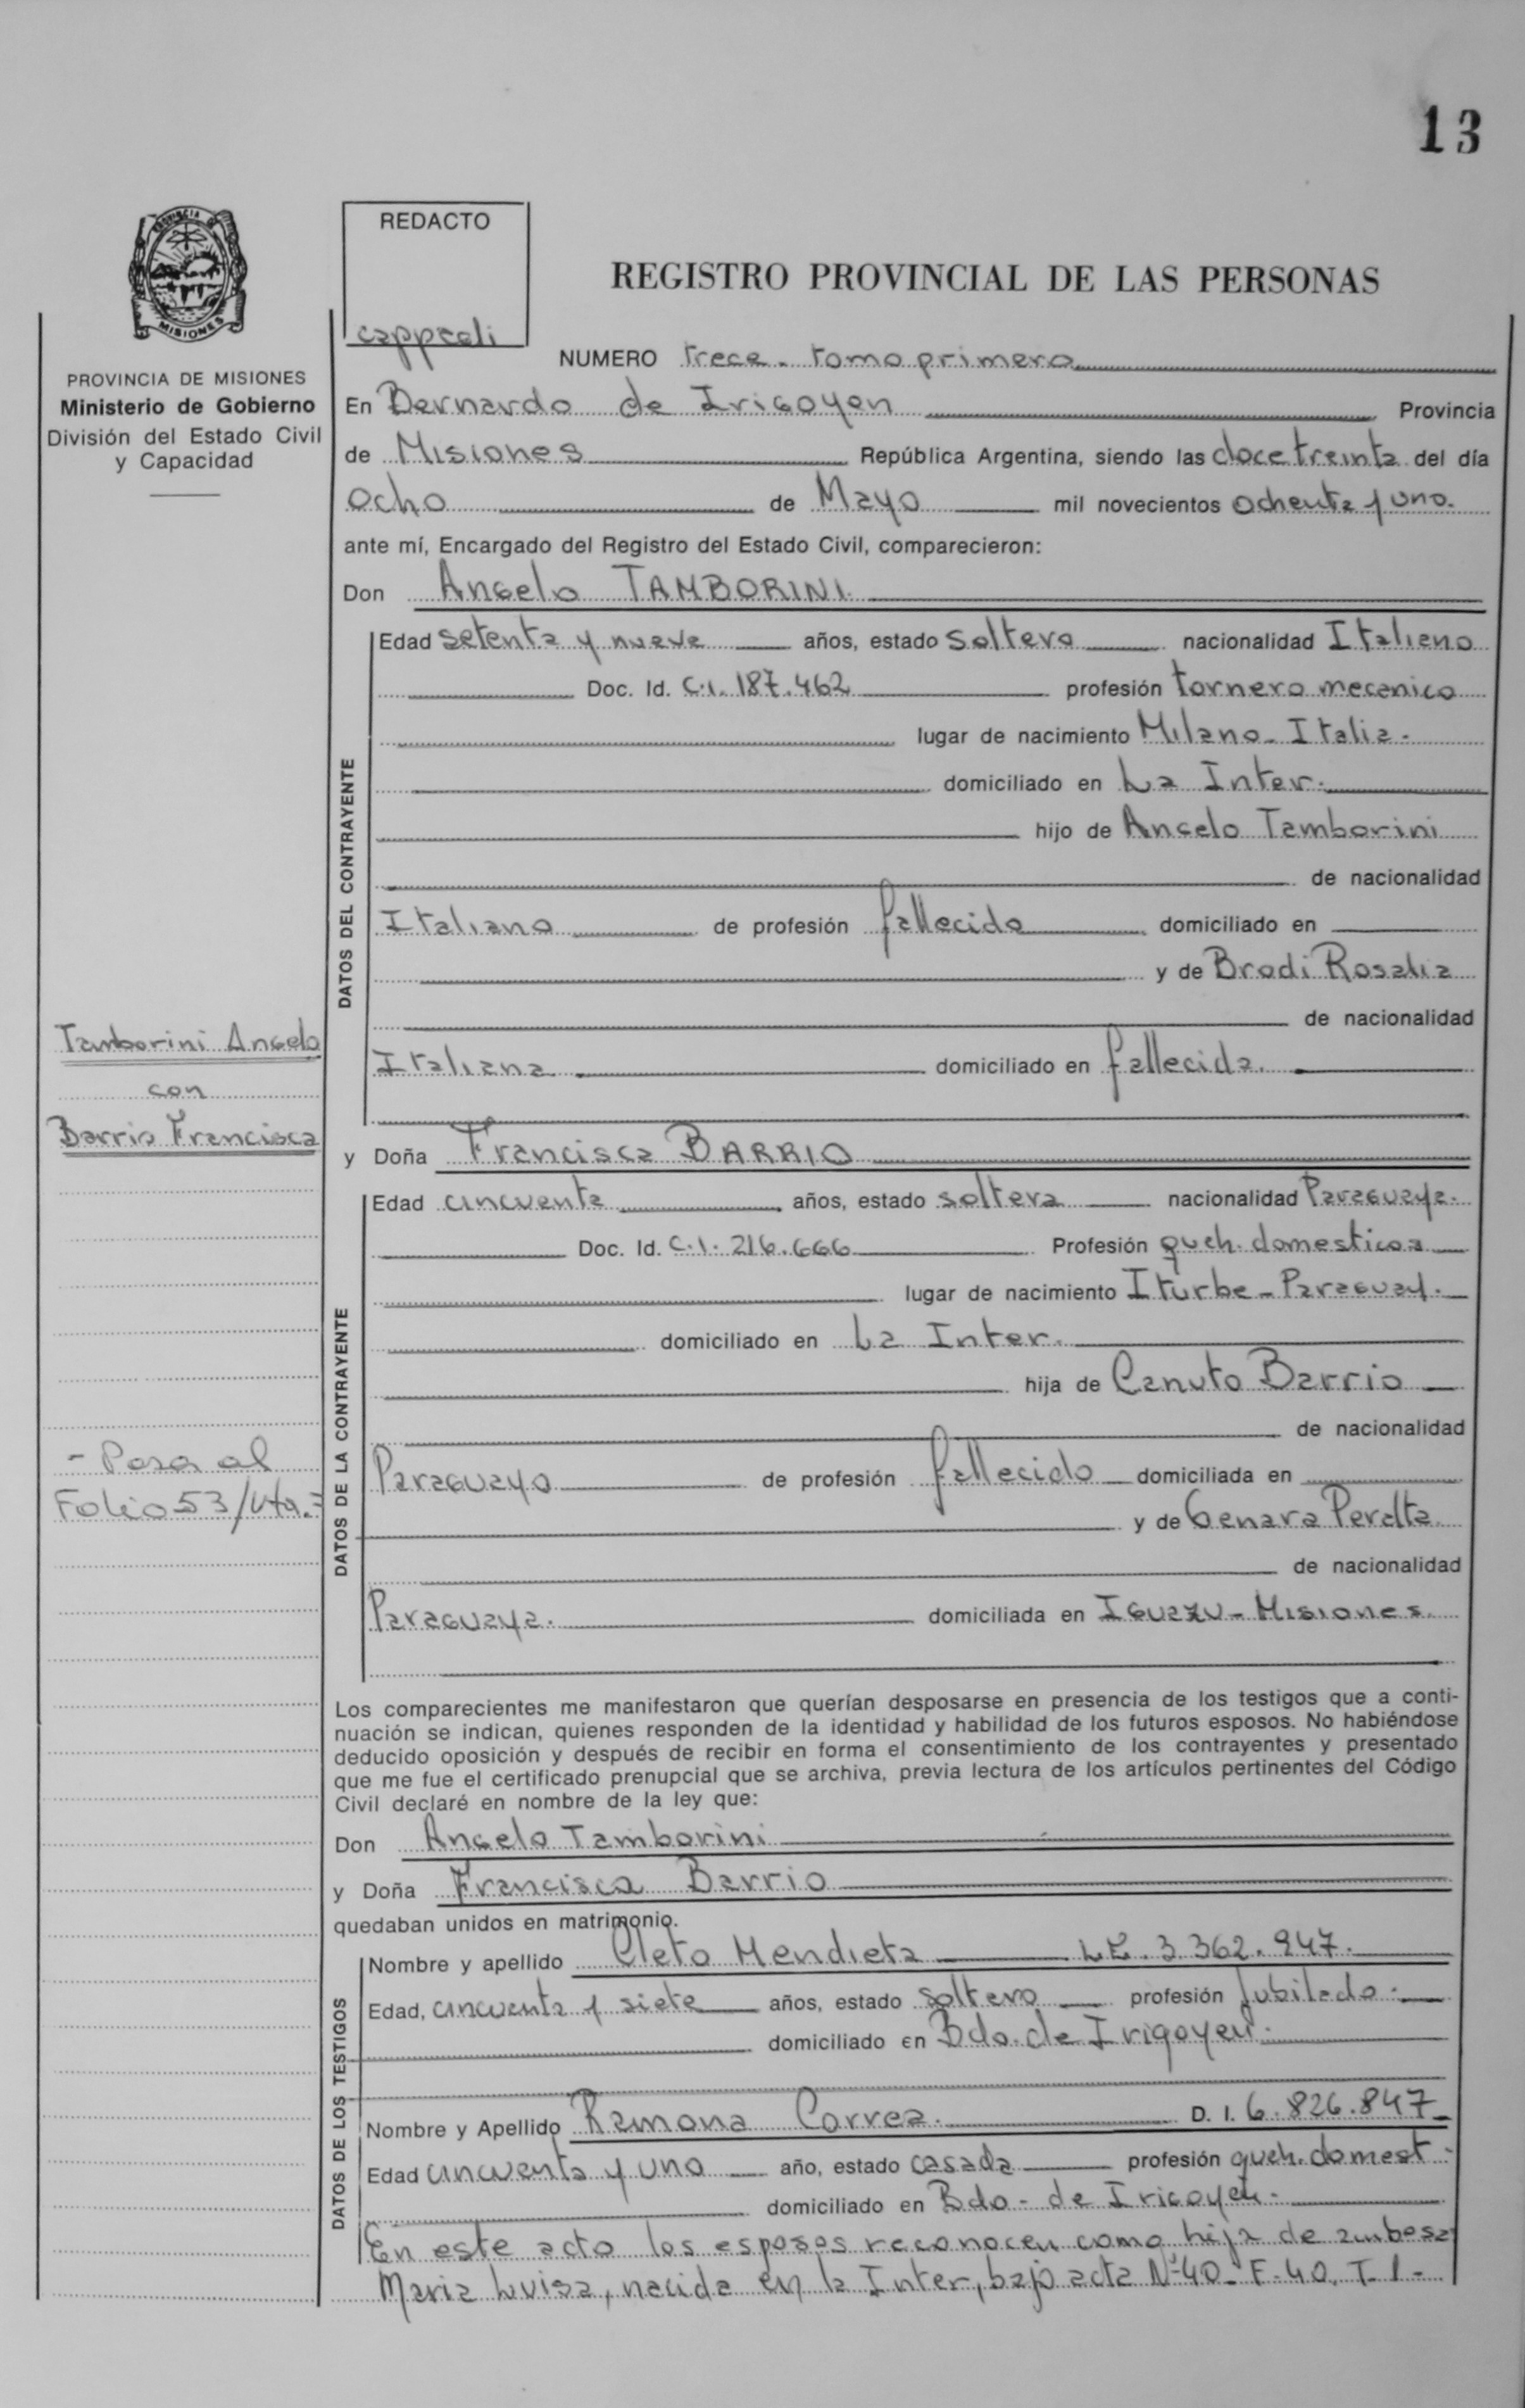 13
REDACTO
REGISTRO PROVINCIAL DE LAS PERSONAS
PROVINCIA DE MISIONES
Ministerio de Gobierno
División del Estado Civil
y Capacidad
NUMERO trece - tomo primero
En Bernardo de Irigoyen Provincia
de Misiones República Argentina, siendo las doce treinta del día
ocho de Mayo mil novecientos ochenta y uno.
ante mí, Encargado del Registro del Estado Civil, comparecieron:
Don Angelo TAMBORINI
DATOS DEL CONTRAYENTE
Edad setenta y nueve años, estado soltero nacionalidad Italiano
Doc. Id. C.I. 187.462 profesión tornero mecanico
lugar de nacimiento Milano - Italia.
domiciliado en La Inter.
hijo de Angelo Tamborini
de nacionalidad
Italiano de profesión fallecido domiciliado en
y de Brodi Rosalia
de nacionalidad
Italiana domiciliado en fallecida.
Tamborini Angelo
con
Barrio Francisca
y Doña Francisca BARRIO
DATOS DE LA CONTRAYENTE
Edad cincuenta años, estado soltera nacionalidad Paraguaya.
Doc. Id. C.I. 216.666 Profesión queh. domesticos
lugar de nacimiento Iturbe - Paraguay.
domiciliado en La Inter.
hija de Canuto Barrio
de nacionalidad
Paraguayo de profesión fallecido domiciliada en
y de Genara Peralta.
de nacionalidad
Paraguaya. domiciliada en Iguazu - Misiones.
- Pasa al
Folio 53/Vta. -
Los comparecientes me manifestaron que querían desposarse en presencia de los testigos que a conti-
nuación se indican, quienes responden de la identidad y habilidad de los futuros esposos. No habiéndose
deducido oposición y después de recibir en forma el consentimiento de los contrayentes y presentado
que me fue el certificado prenupcial que se archiva, previa lectura de los artículos pertinentes del Código
Civil declaré en nombre de la ley que:
Don Angelo Tamborini
y Doña Francisca Barrio
quedaban unidos en matrimonio.
DATOS DE LOS TESTIGOS
Nombre y apellido Cleto Mendieta L.E. 3.362.247.
Edad, cincuenta y siete años, estado soltero profesión Jubilado.
domiciliado en Bdo. de Irigoyen.
Nombre y Apellido Ramona Correa. D. I. 6.826.847
Edad cincuenta y uno año, estado casada profesión queh. domest.
domiciliado en Bdo - de Irigoyen.
En este acto los esposos reconocen como hija de ambos a
Maria Luisa, nacida en la Inter, bajo acta Nº 40 - F. 40. T. 1 -